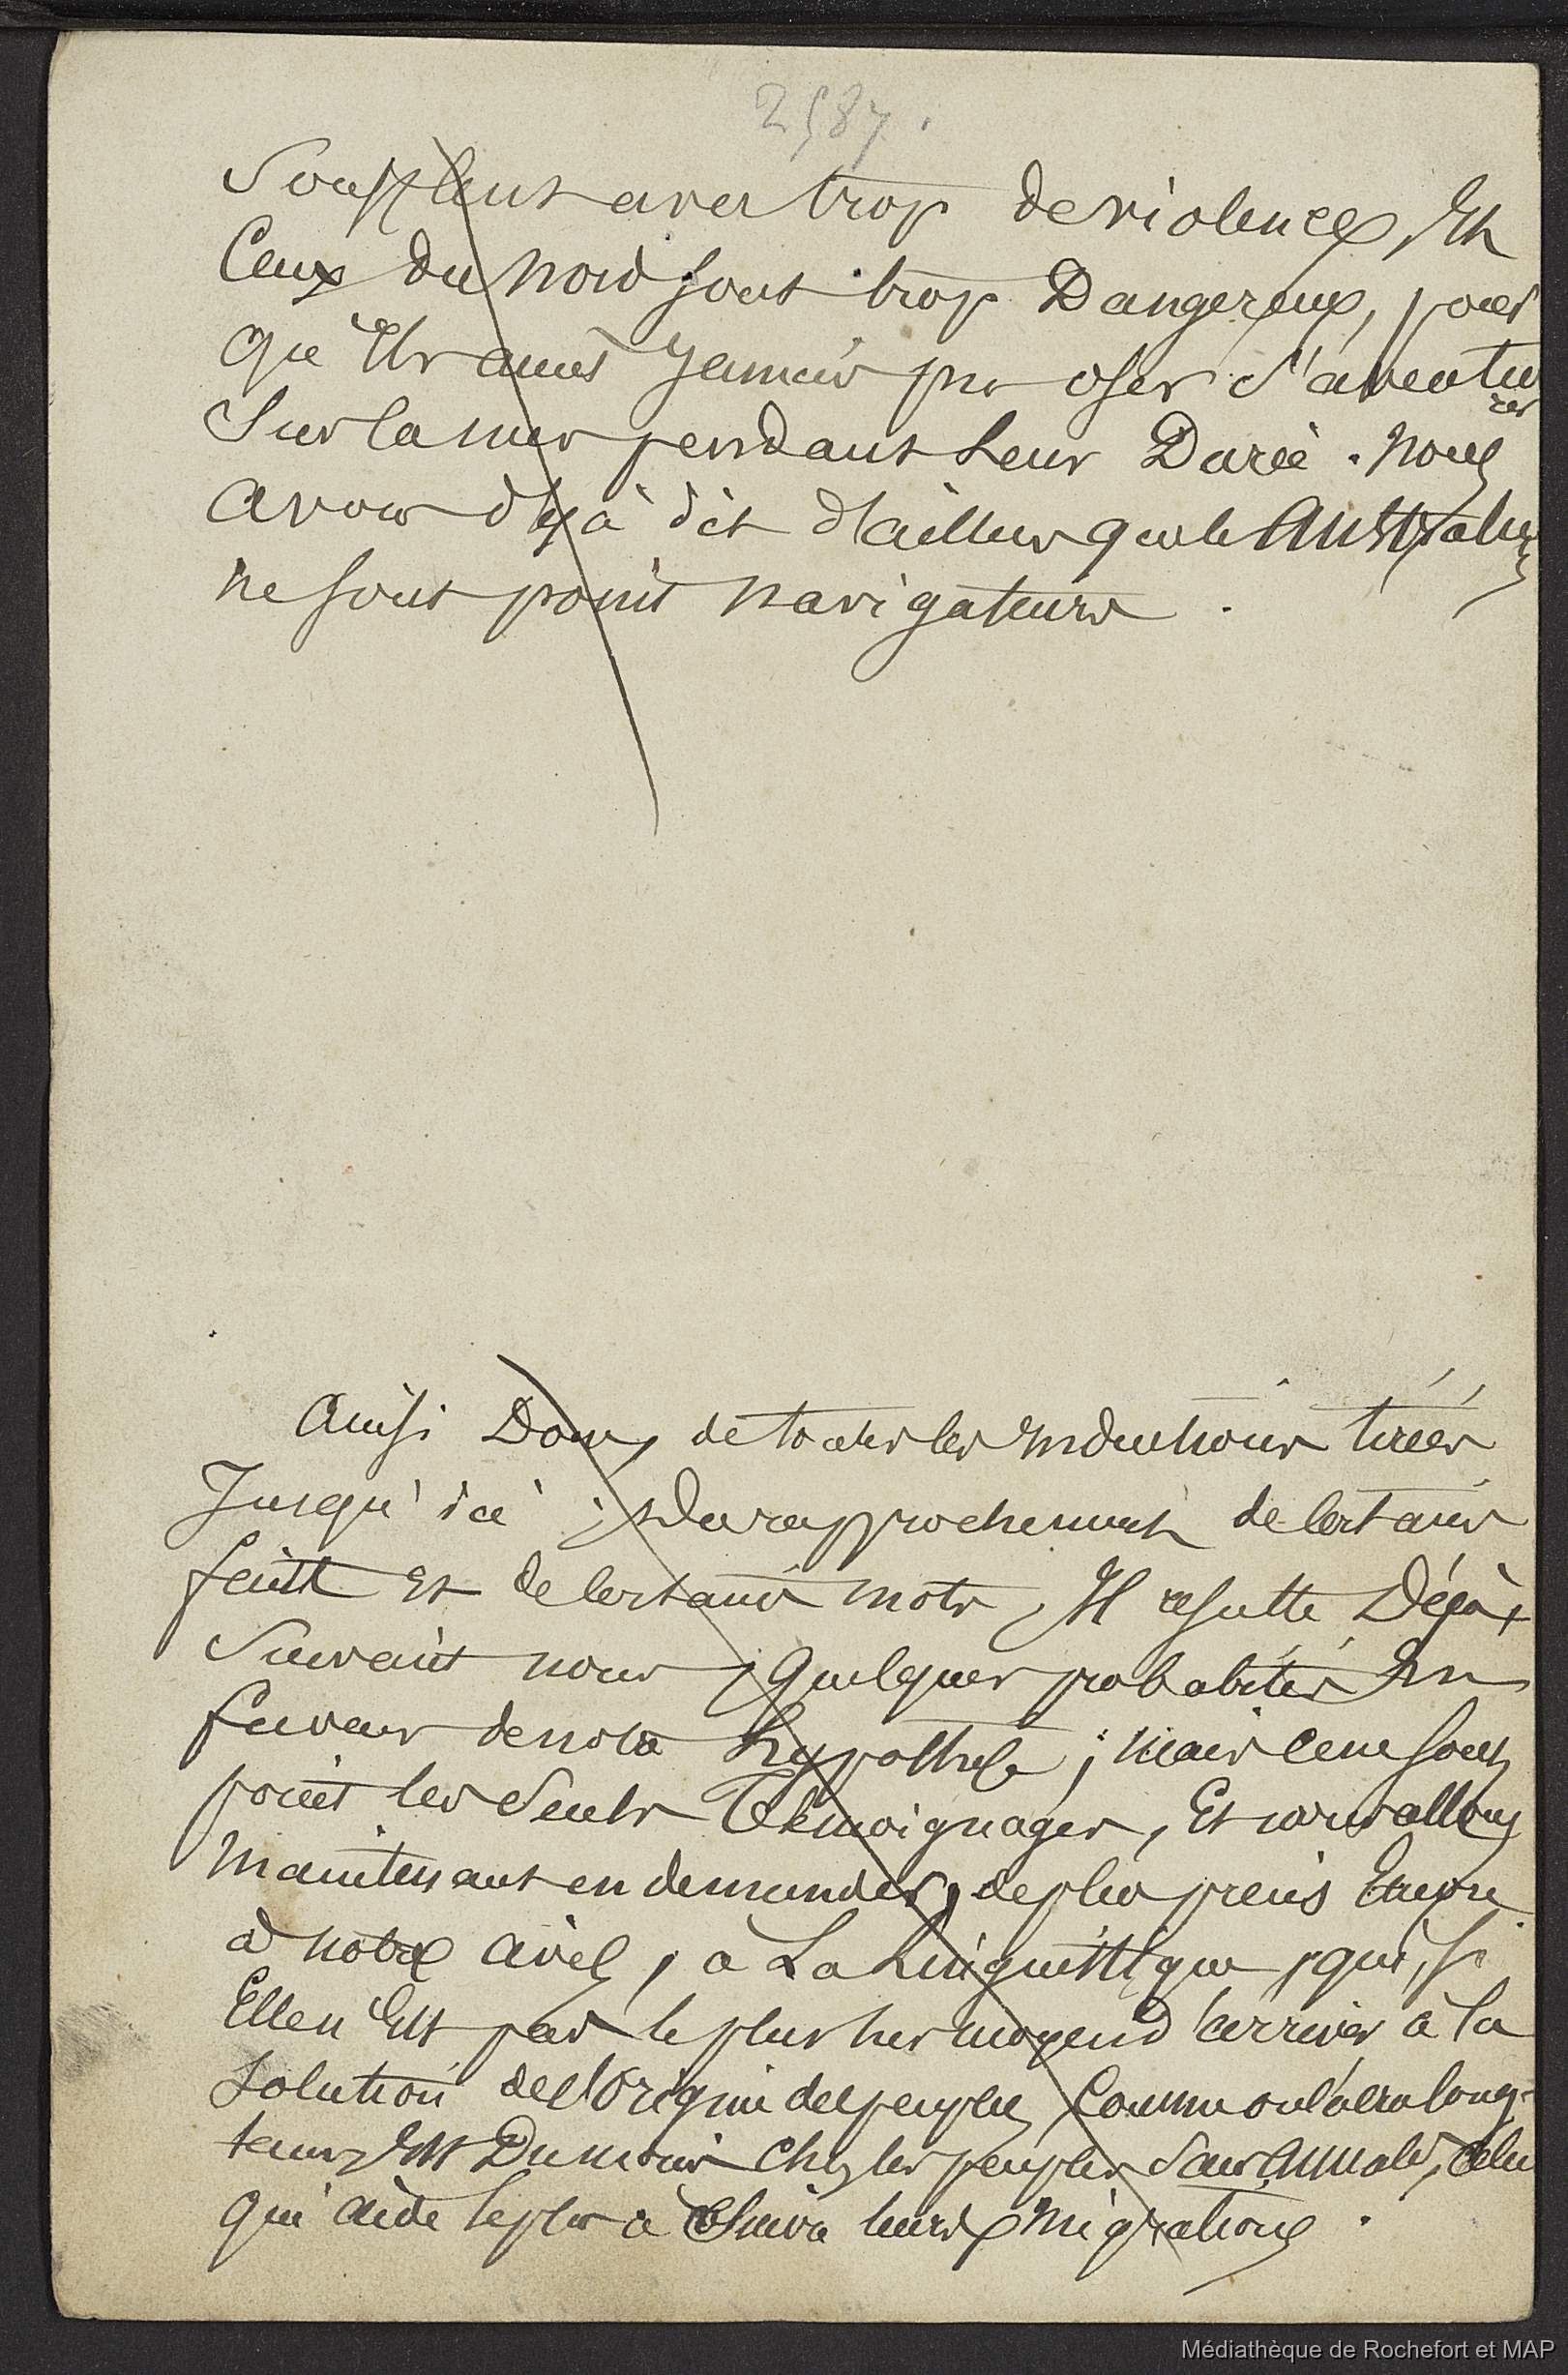 2587.
Soufflent avec trop de violence, Et
Ceux du Nord sont trop Dangereux, pour
qu'Ils aient Jamais pu oser s'aventu
rer
Sur la mer pendant Leur Durée. Nous
avons déjà dit d'ailleurs que les Australiens
ne sont point navigateurs.
Ainsi Donc, de toutes les Inductions tirées
Jusqu'ici, du rapprochement de certains
faits Et de certains mots, Il résulte Déjà,
Suivant nous, Quelques probabilités En
faveur de notre hypothèse; mais ce ne sont
point les Seuls Témoignages, Et nous allons
maintenant en demander, de plus précis Encore
à notre avis, à La Linguistique, qui, si
Elle n'Est pas le plus sûr moyen d'arriver à la
Solution de l'Origine des peuples Comme on l'a cru long-
temps, Est Du moins Chez les peuples Sans Annales, celui
qui aide le plus à Suivre leurs Migrations.
Médiathèque de Rochefort et MAP